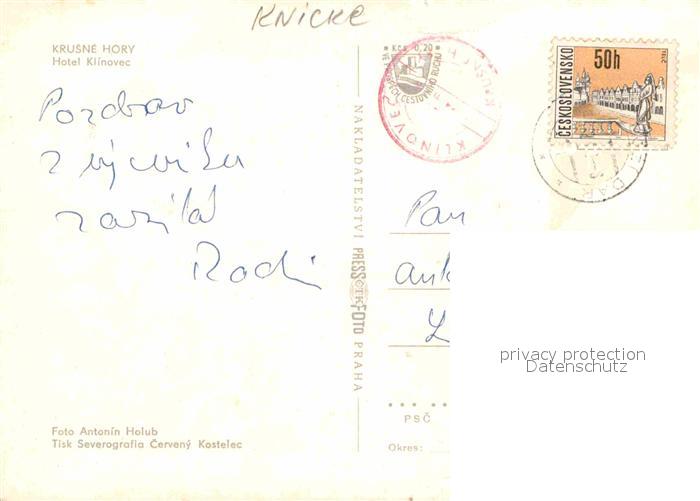 KNICKE
KRUŠNÉ HORY
Hotel Klínovec
Kčs 0,20
CESTOVNÍHO RUCHU
KLÍNOVEC
ČESKOSLOVENSKO
50h
Pozdrav
z výcviku
zasílá
Radi
NAKLADATELSTVÍ PRESSFOTO PRAHA
ČTK
Pan
privacy protection
Datenschutz
PSČ
Okres:
Foto Antonín Holub
Tisk Severografia Červený Kostelec